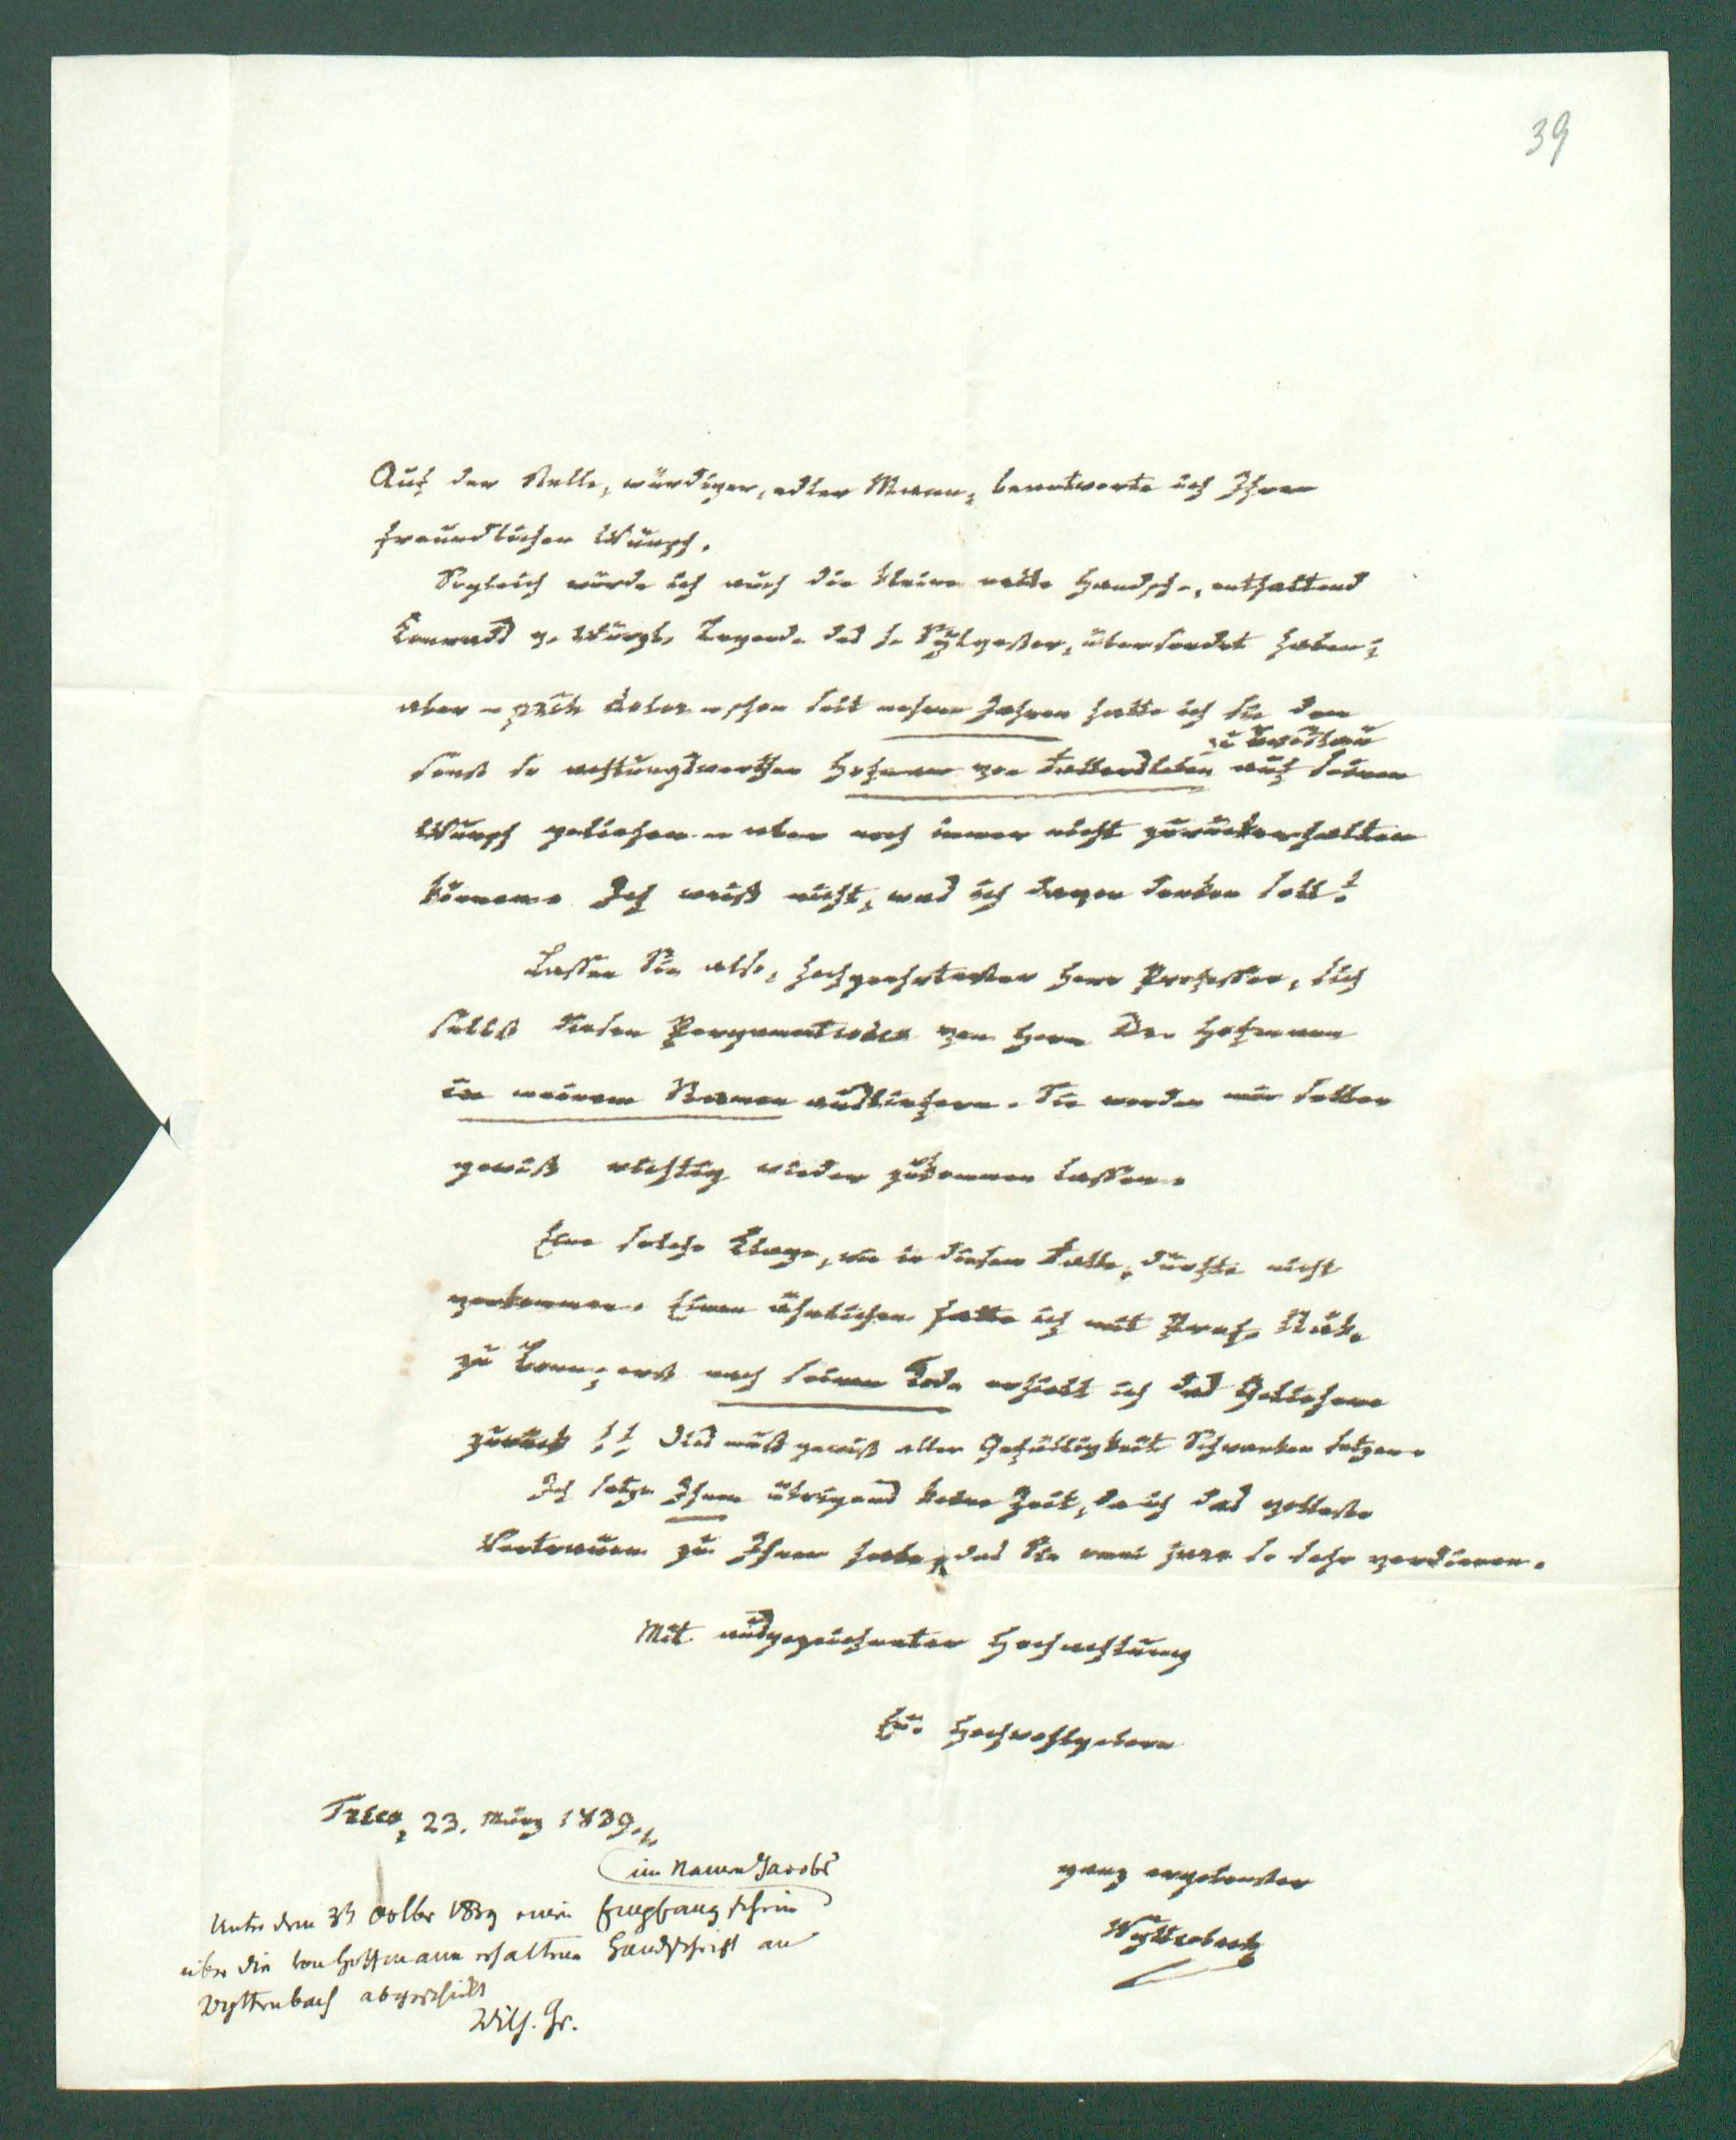 39
Auf der Stelle, würdiger, edler Mann, beantworte ich Ihren
freundlichen Wunsch.
Sogleich würde ich auch die kleine nette Handsch., enthaltend
Konrads v. Würzb. Legende des h. Sylvester, übersendet haben;
aber – proh dolor – schon seit mehren Jahren hatte ich sie dem
zu Breslau
sonst so achtungswerthen Hofmann von Fallersleben auf seinen
Wunsch geliehen – aber noch immer nicht zurückerhalten
können. Ich weiß nicht, was ich davon denken soll!
Lassen Sie also, hochgeehrtester Herr Professor, sich
selbst diesen Pergamentcodex von Herrn Dr. Hofmann
in meinem Namen ausliefern. Sie werden mir selben
gewiß richtig wieder zukommen lassen.
Eine solche Klage, wie in diesem Falle, dürfte nicht
vorkommen. Einen ähnlichen hatte ich mit Prof. Näk.
zu Bonn; erst nach seinem Tode erhielt ich das Geliehene
zurück!! Dies muß gewiß aller Gefälligkeit Schranken setzen.
Ich setze Ihnen übrigens keine Zeit, da ich das vollste
Vertrauen zu Ihnen habe, das Sie omni jure so sehr verdienen.
Mit ausgezeichneter Hochachtung
Eu. Hochwohlgeborn
Trier, 23. März 1839.
ganz ergebenster
Wyttenbach
im Namen Jacobs
Unter dem 31 October 1839 einen Empfangschein
über die von Hoffmann erhaltene Handschrift an
Wyttenbach abgeschickt
Wilh. Gr.